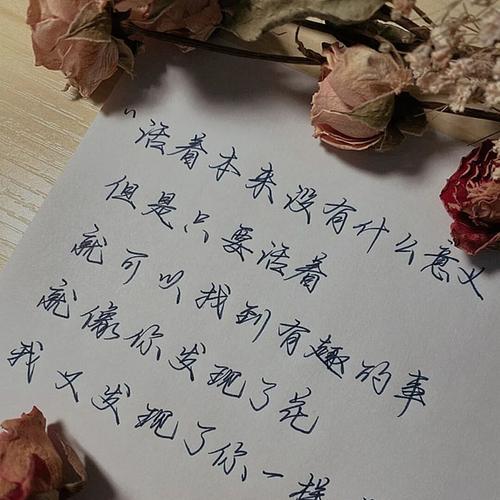 “活着本来没有什么意义
但是只要活着
就可以找到有趣的事
就像你发现了花
我又发现了你一样